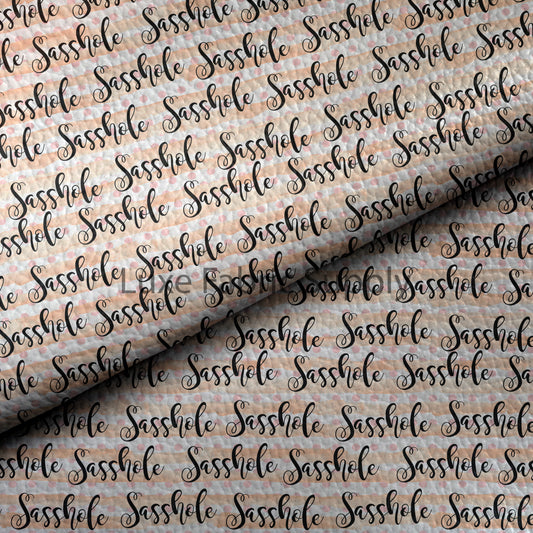 Sasshole Sasshole Sasshole
Sasshole Sasshole Sasshole Sasshole
Sasshole Sasshole Sasshole Sasshole
Sasshole Sasshole Sasshole Sasshole
Sasshole Sasshole Sasshole Sasshole
Sasshole Sasshole Sasshole Sasshole
Luxe Fabric Supply
Sasshole Sasshole Sasshole Sasshole
Sasshole Sasshole Sasshole Sasshole
Sasshole Sasshole Sasshole Sasshole
Sasshole Sasshole Sasshole Sasshole Sasshole
Sasshole Sasshole Sasshole Sasshole Sasshole